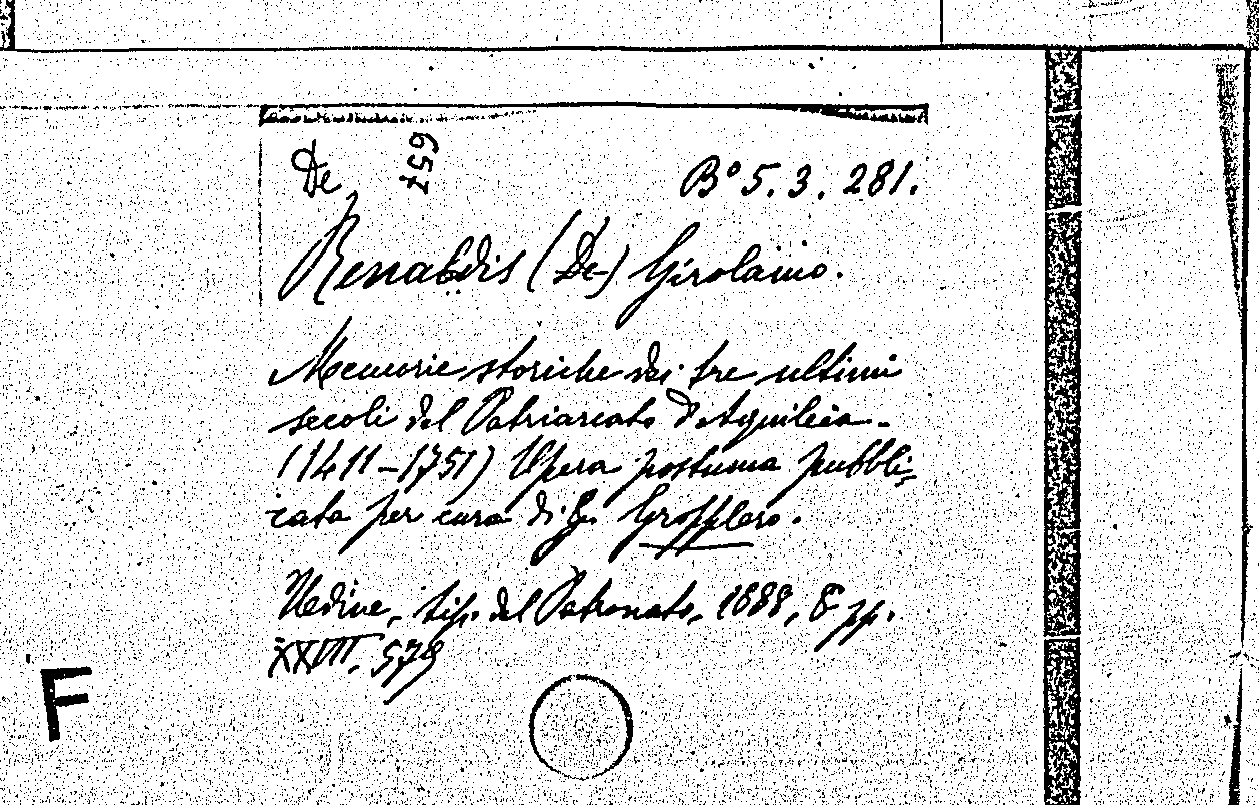 De 657 Bº 5. 3. 281.
Renaldis (De) Girolamo.
Memorie storiche dei tre ultimi
secoli del Patriarcato d'Aquileia.
(1411-1751) Opera postuma pubbli-
cata per cura di G. Gropplero.
Udine, tip. del Patronato, 1888, 8º pp.
XXVIII. 579
F